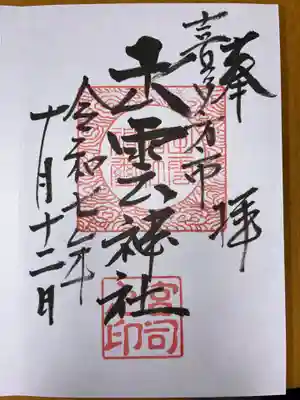 奉拝
喜多方市
出雲神社
令和七年
十月十二日
宮司之印